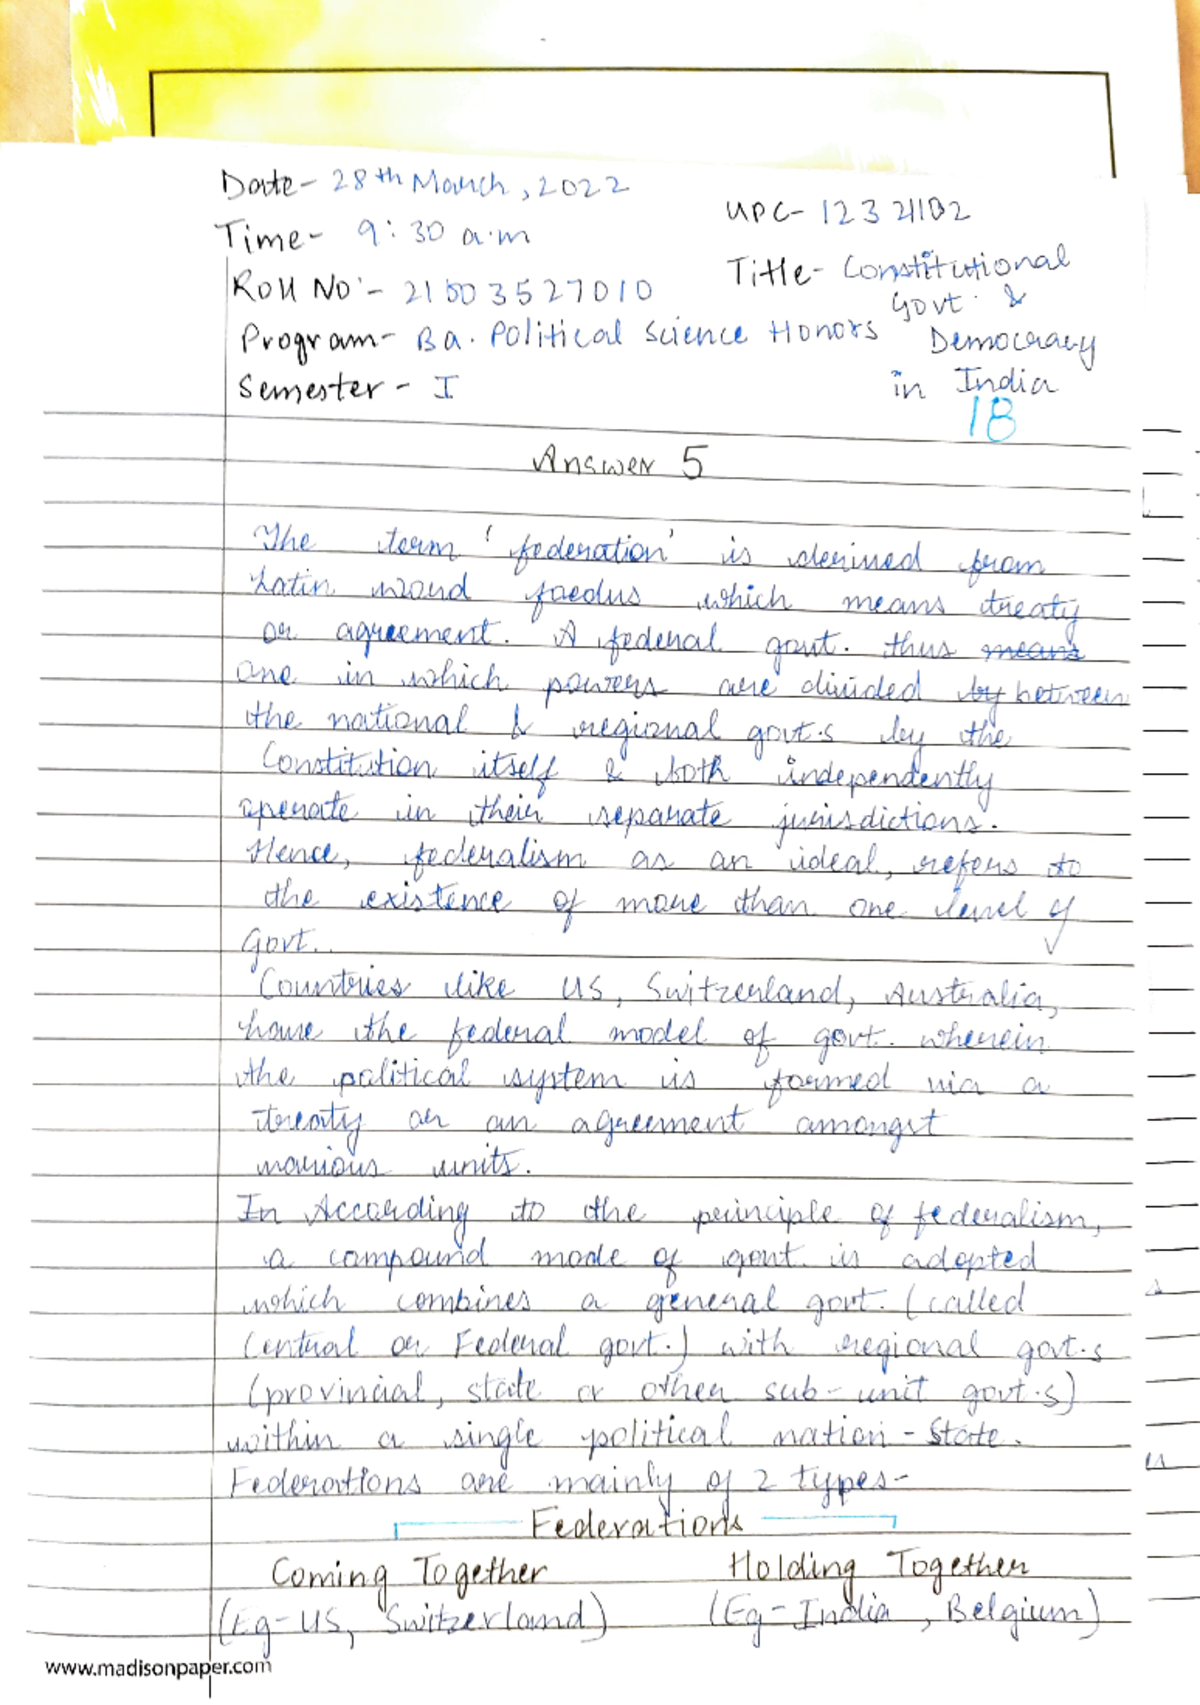 Date- 28th March, 2022
UPC- 12321102
Time- 9:30 a.m
Title- Constitutional
Roll No:- 21503527010
Govt. &
Program- Ba. Political Science Honors
Democracy
Semester - I
in India
18
Answer 5
The term 'federation' is derived from
Latin word foedus which means treaty
or agreement. A federal govt. thus means
one in which powers are divided by between
the national & regional govt.s by the
Constitution itself & both independently
operate in their separate jurisdictions.
Hence, federalism as an ideal, refers to
the existence of more than one level of
Govt.
Countries like US, Switzerland, Australia,
have the federal model of govt. wherein
the political system is formed via a
treaty or an agreement amongst
various units.
In According to the principle of federalism,
a compound mode of govt. is adopted
which combines a general govt. (called
Central or Federal govt.) with regional govt.s
(provincial, state or other sub-unit govt.s)
within a single political nation - State.
Federations are mainly of 2 types-
Federations
Coming Together
Holding Together
(Eg- US, Switzerland)
(Eg- India, Belgium)
www.madisonpaper.com